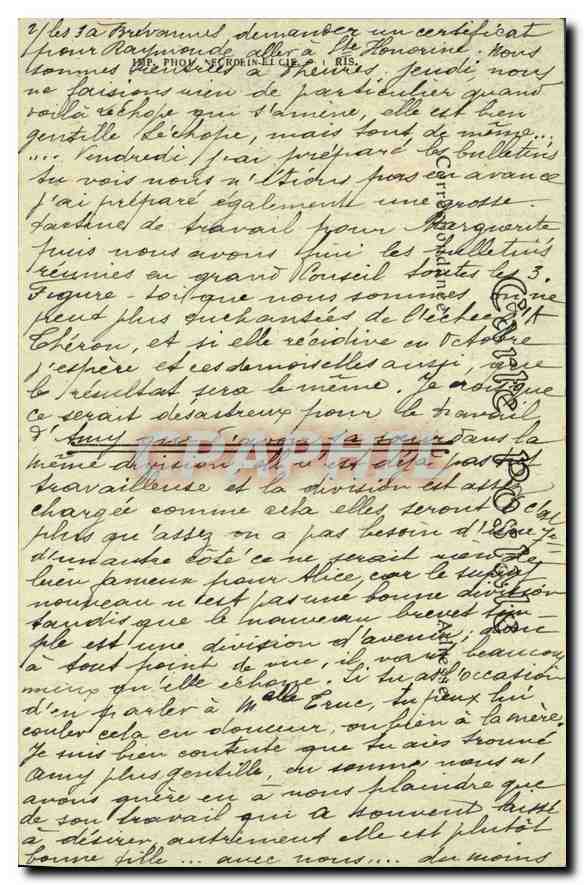 2/ les 3 à Brévannes, demander un certificat
pour Raymonde aller à Ste Honorine. Nous
sommes rentrées à heures. Jeudi, nous
IMP. PHOT. NEURDEIN ET CIE. RIS.
ne faisions rien de particulier quand
voilà Lechope qui s'amène, elle est bien
gentille Lechope, mais tout de même...
.... Vendredi j'ai préparé les bulletins
tu vois nous n'étions pas en avance
j'ai préparé également une grosse
de travail pour Marguerite
puis nous avons fini les bulletins
réunies en grand Conseil toutes les 3.
Figure-toi que nous sommes on ne
peut plus enchantées de l'échec d'A
Théron, et si elle récidive en Octobre
j'espère et ces demoiselles aussi, que
le résultat sera le même. Je crois que
ce serait désastreux pour le travail
d'Amy que d'avoir sa sœur dans la
même division, elle n'est déjà pas
travailleuse et la division est assez
chargée comme cela elles seront c'est
plus qu'assez on a pas besoin d'une
d'un autre côté ce ne serait rien de
bien fameux pour Alice, car le
nouveau n'est pas une bonne division
tandis que le nouveau brevet sim-
ple est une division d'avenir; donc
à tout point de vue, il vaut beaucoup
mieux qu'elle échoue. Si tu as l'occasion
d'en parler à Melle Truc, tu peux lui
couler cela en douceur, ou bien à la mère.
Je suis bien contente que tu aies trouvé
Amy plus gentille, en somme nous n'
avons guère eu à nous plaindre que
de son travail qui a souvent laissé
à désirer, autrement elle est plutôt
bonne fille ... avec nous .... du moins
Carte Postale
Correspondance
Adresse
CPAPHIL